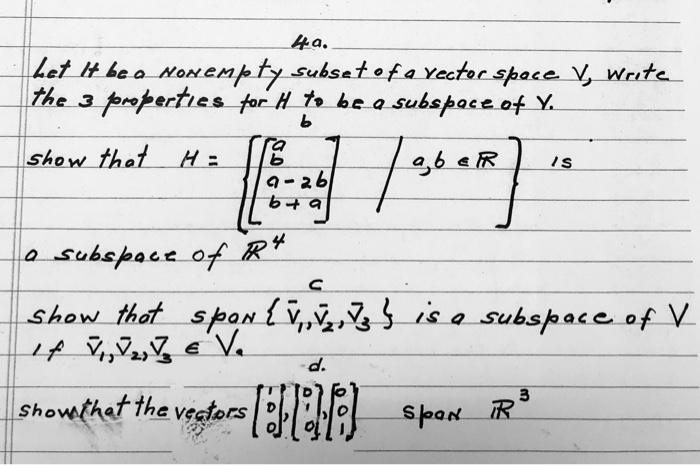 4a.
Let H be a NONEMpty subset of a vector space V, Write
the 3 properties for H to be a subspace of V.
b
show that H = { [ a
b
a-2b
b+a ] / a,b ∈ ℝ } is
a subspace of ℝ⁴
c
show that span { v̄₁, v̄₂, v̄₃ } is a subspace of V
if v̄₁, v̄₂, v̄₃ ∈ V.
d.
show that the vectors [1 0 0], [0 1 0], [0 0 1] span ℝ³